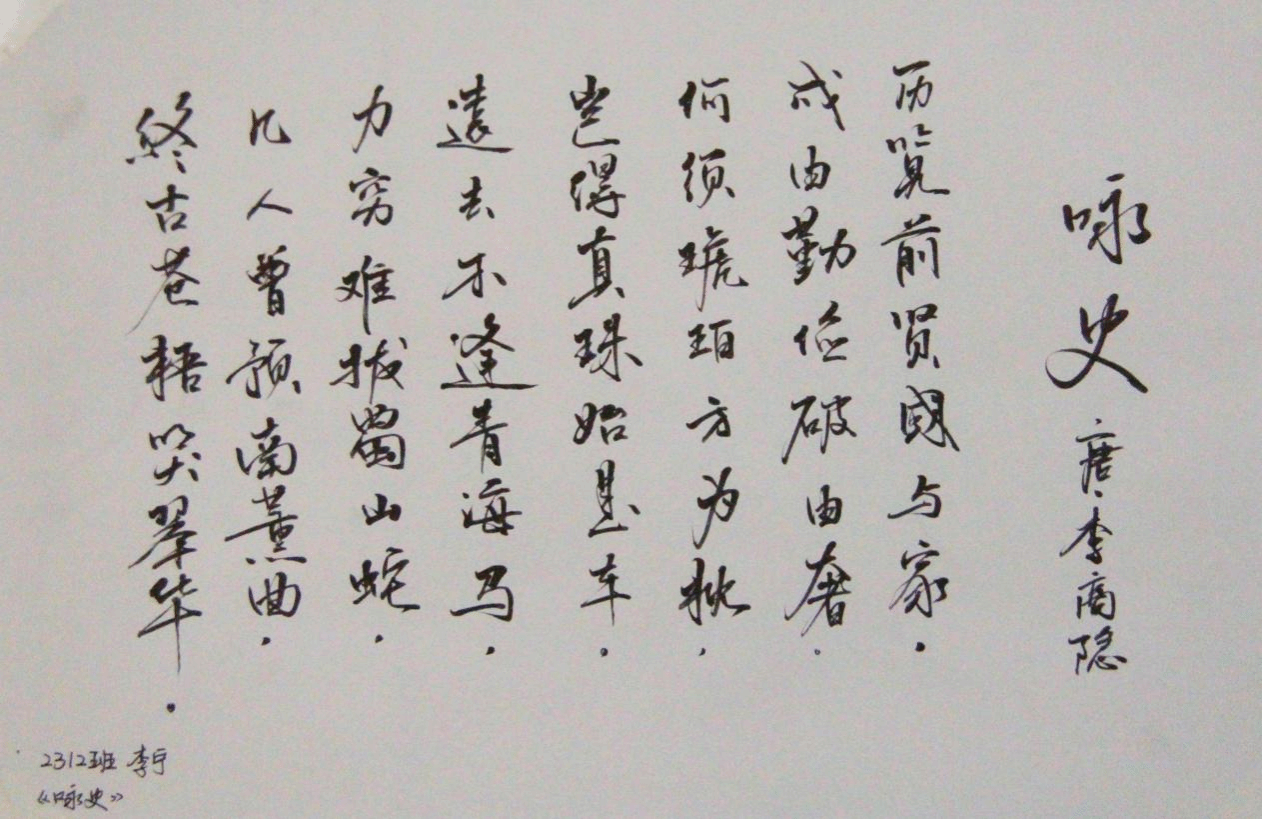 咏史 唐·李商隐
历览前贤國与家.
成由勤俭破由奢.
何须琥珀方为枕.
岂得真珠始是车.
遠去不逢青海马.
力穷难拔蜀山蛇.
几人曾预南薰曲.
終古苍梧哭翠华.
2312班 李宁
《咏史》